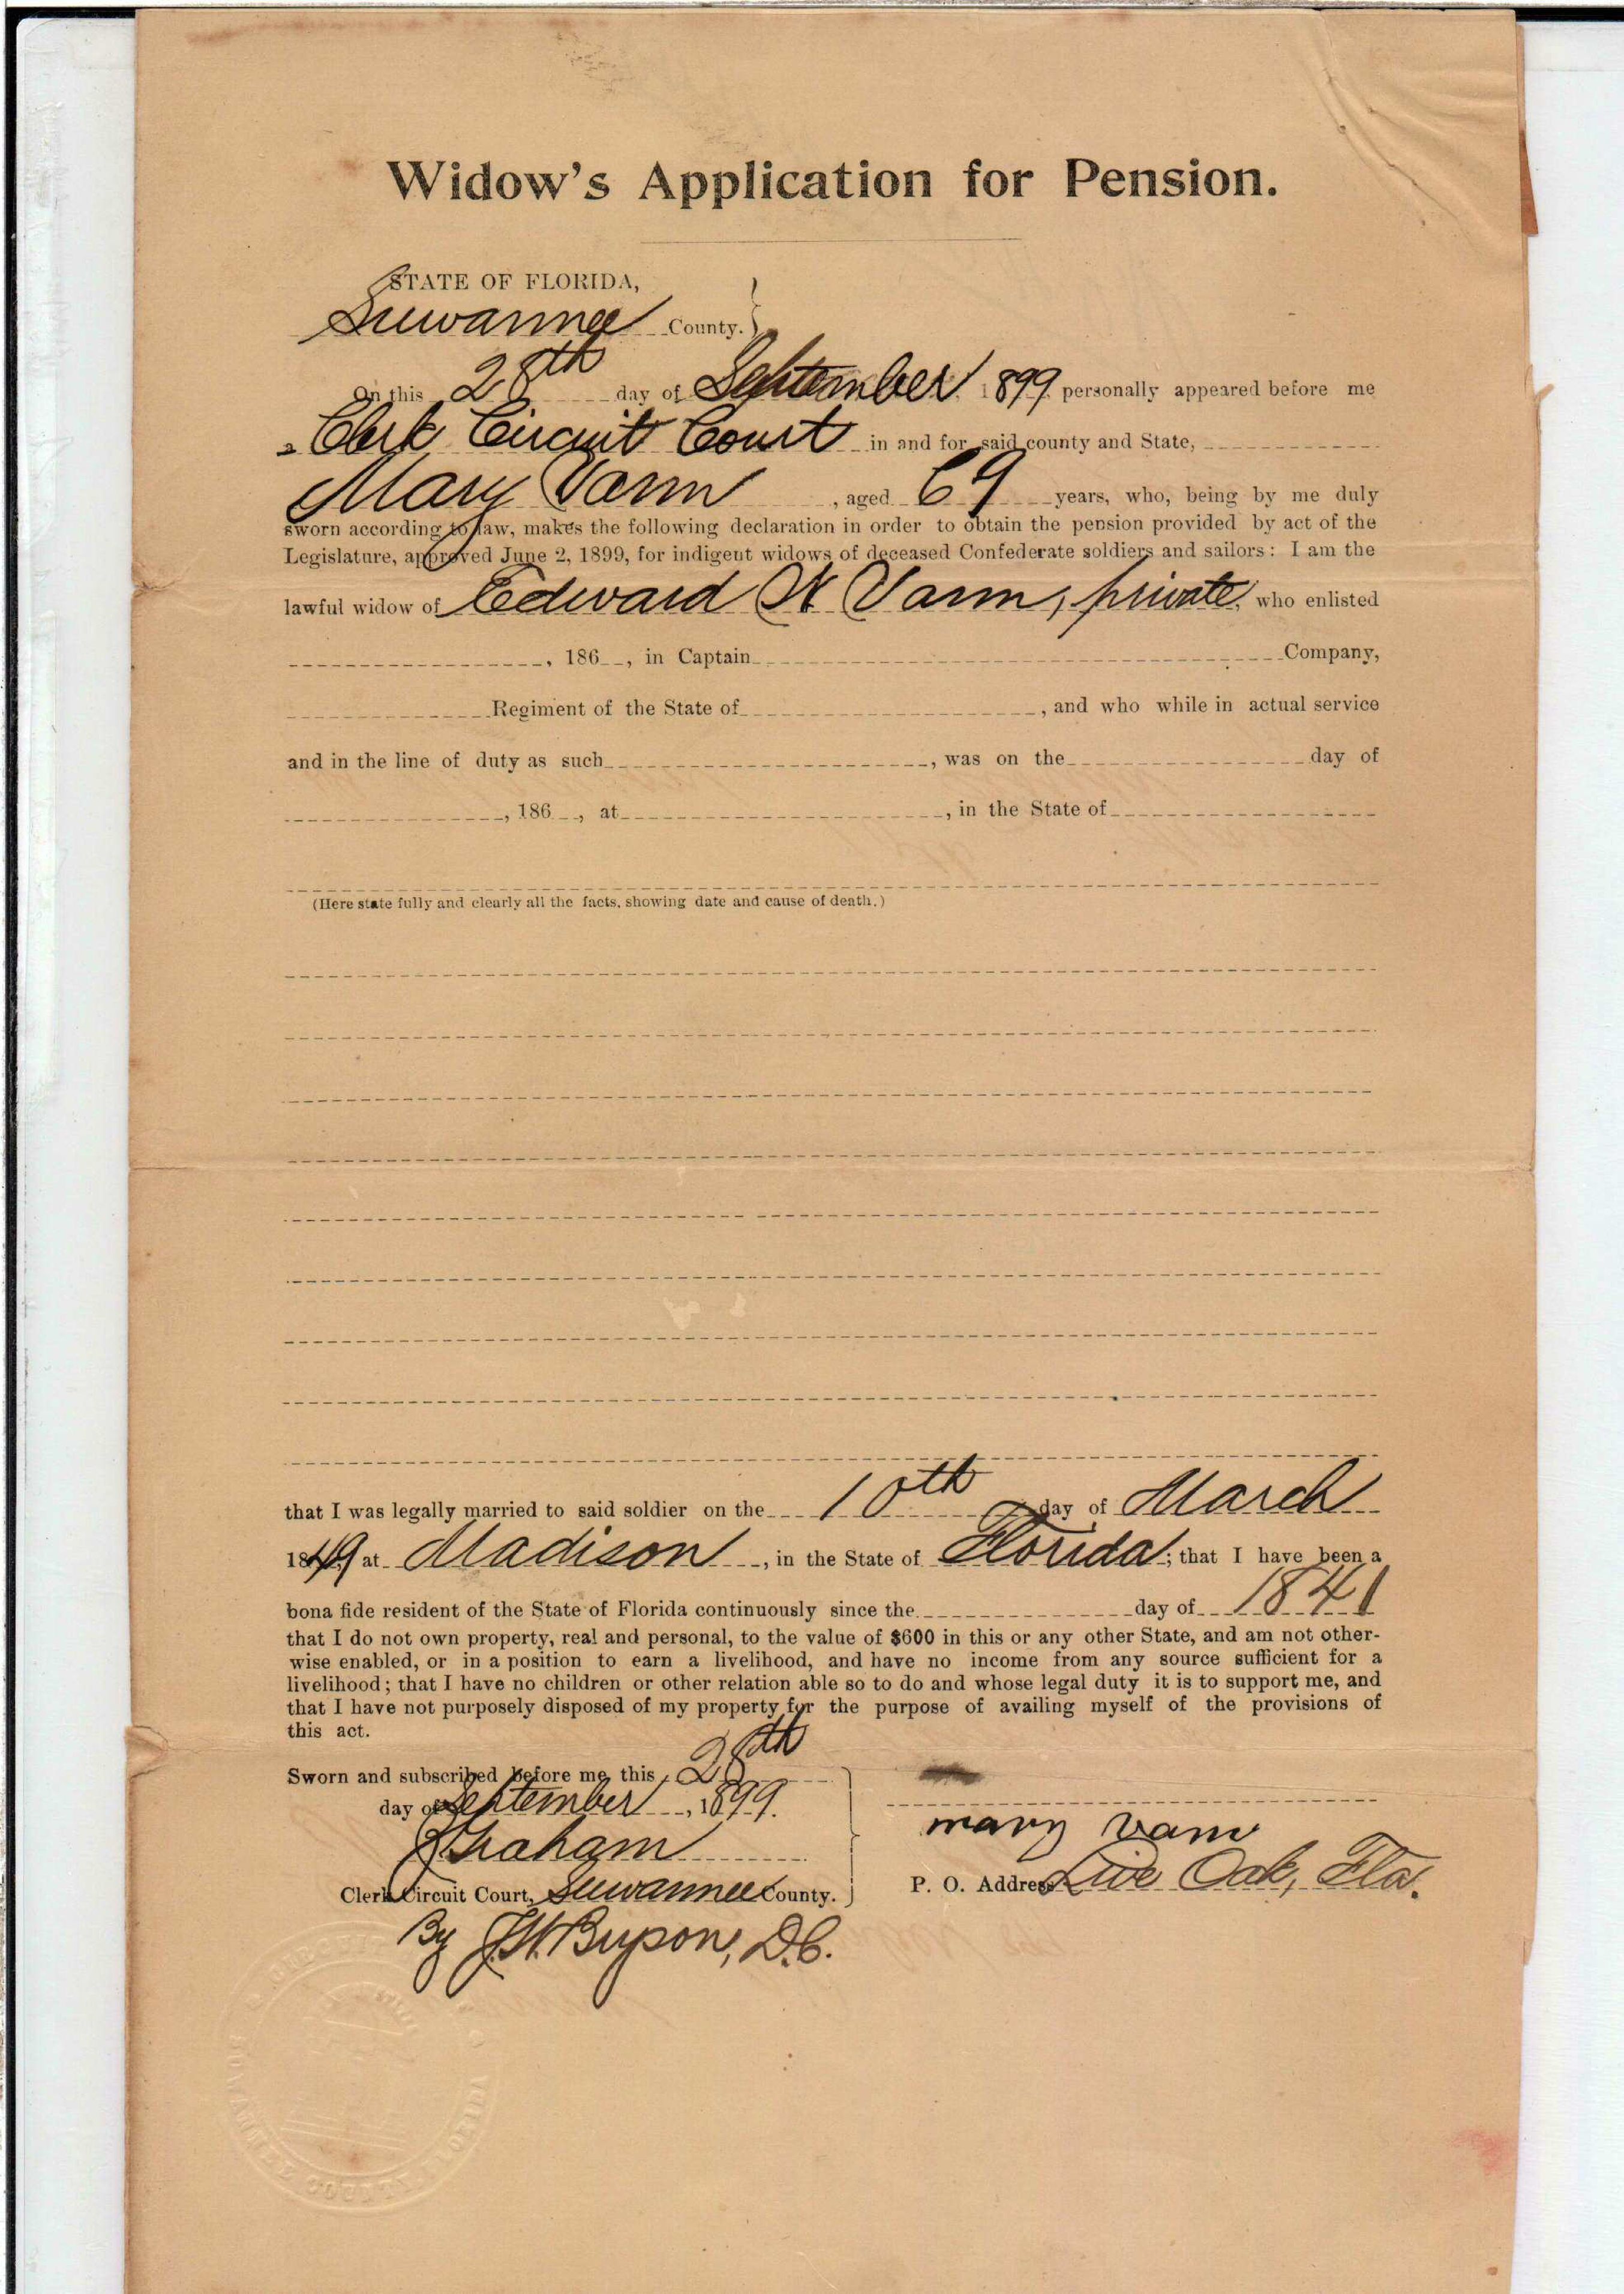 Widow's Application for Pension.
STATE OF FLORIDA,
Suwannee County.
On this 28th day of September 1899 personally appeared before me
a Clerk Circuit Court in and for said county and State,
Mary Vann, aged 69 years, who, being by me duly
sworn according to law, makes the following declaration in order to obtain the pension provided by act of the
Legislature, approved June 2, 1899, for indigent widows of deceased Confederate soldiers and sailors: I am the
lawful widow of Edward Vann, private, who enlisted
, 186 , in Captain Company,
Regiment of the State of , and who while in actual service
and in the line of duty as such , was on the day of
, 186 , at , in the State of
(Here state fully and clearly all the facts, showing date and cause of death.)
that I was legally married to said soldier on the 10th day of March
1849 at Madison, in the State of Florida; that I have been a
bona fide resident of the State of Florida continuously since the day of 1841
that I do not own property, real and personal, to the value of $600 in this or any other State, and am not other-
wise enabled, or in a position to earn a livelihood, and have no income from any source sufficient for a
livelihood; that I have no children or other relation able so to do and whose legal duty it is to support me, and
that I have not purposely disposed of my property for the purpose of availing myself of the provisions of
this act.
Sworn and subscribed before me this 28th
day of September, 1899.
Graham
mary vann
Clerk Circuit Court, Suwannee County.
P. O. Address Live Oak, Fla.
By J.W. Bryson, D.C.
SUWANNEE COUNTY, FLORIDA